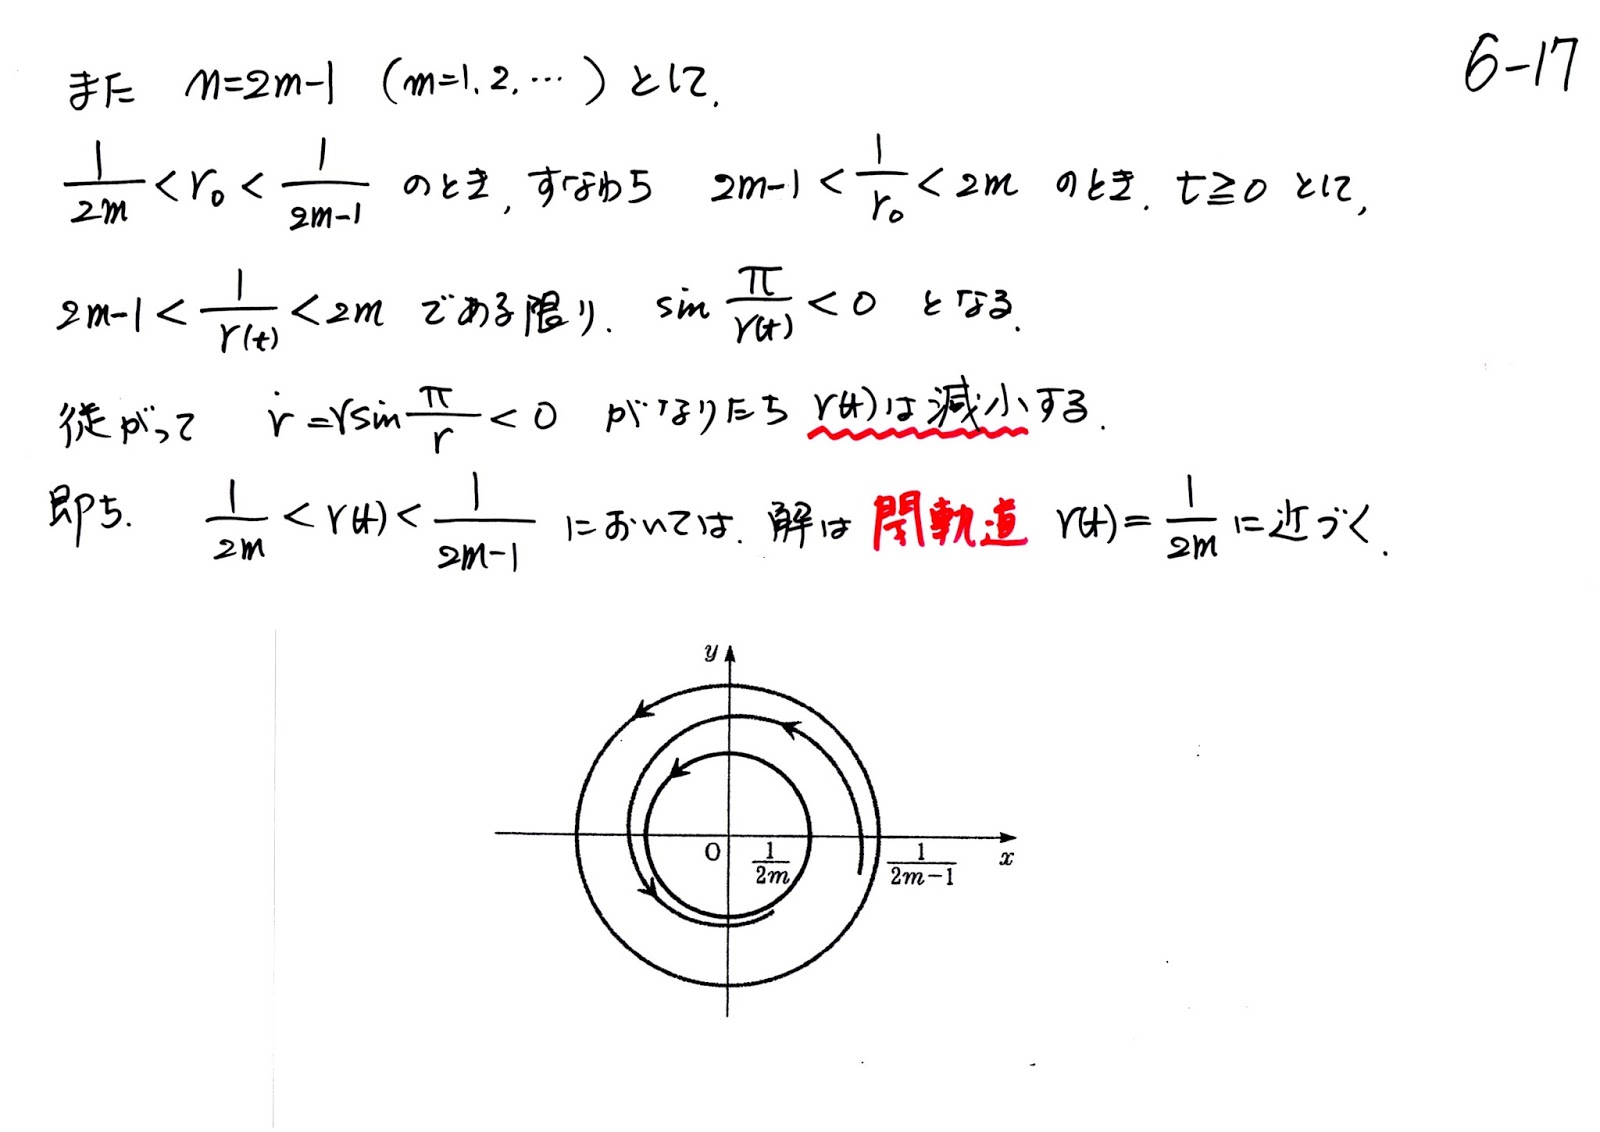 6-17
また n=2m-1 (m=1, 2, …) として、
1/2m < r₀ < 1/2m-1 のとき、すなわち 2m-1 < 1/r₀ < 2m のとき、t≧0 として、
2m-1 < 1/r(t) < 2m である限り、 sin π/r(t) < 0 となる、
従がって ṙ = r sin π/r < 0 がなりたち r(t)は減少する.
即ち、 1/2m < r(t) < 1/2m-1 においては、解は 閉軌道 r(t) = 1/2m に近づく.
y
O 1/2m 1/2m-1 x